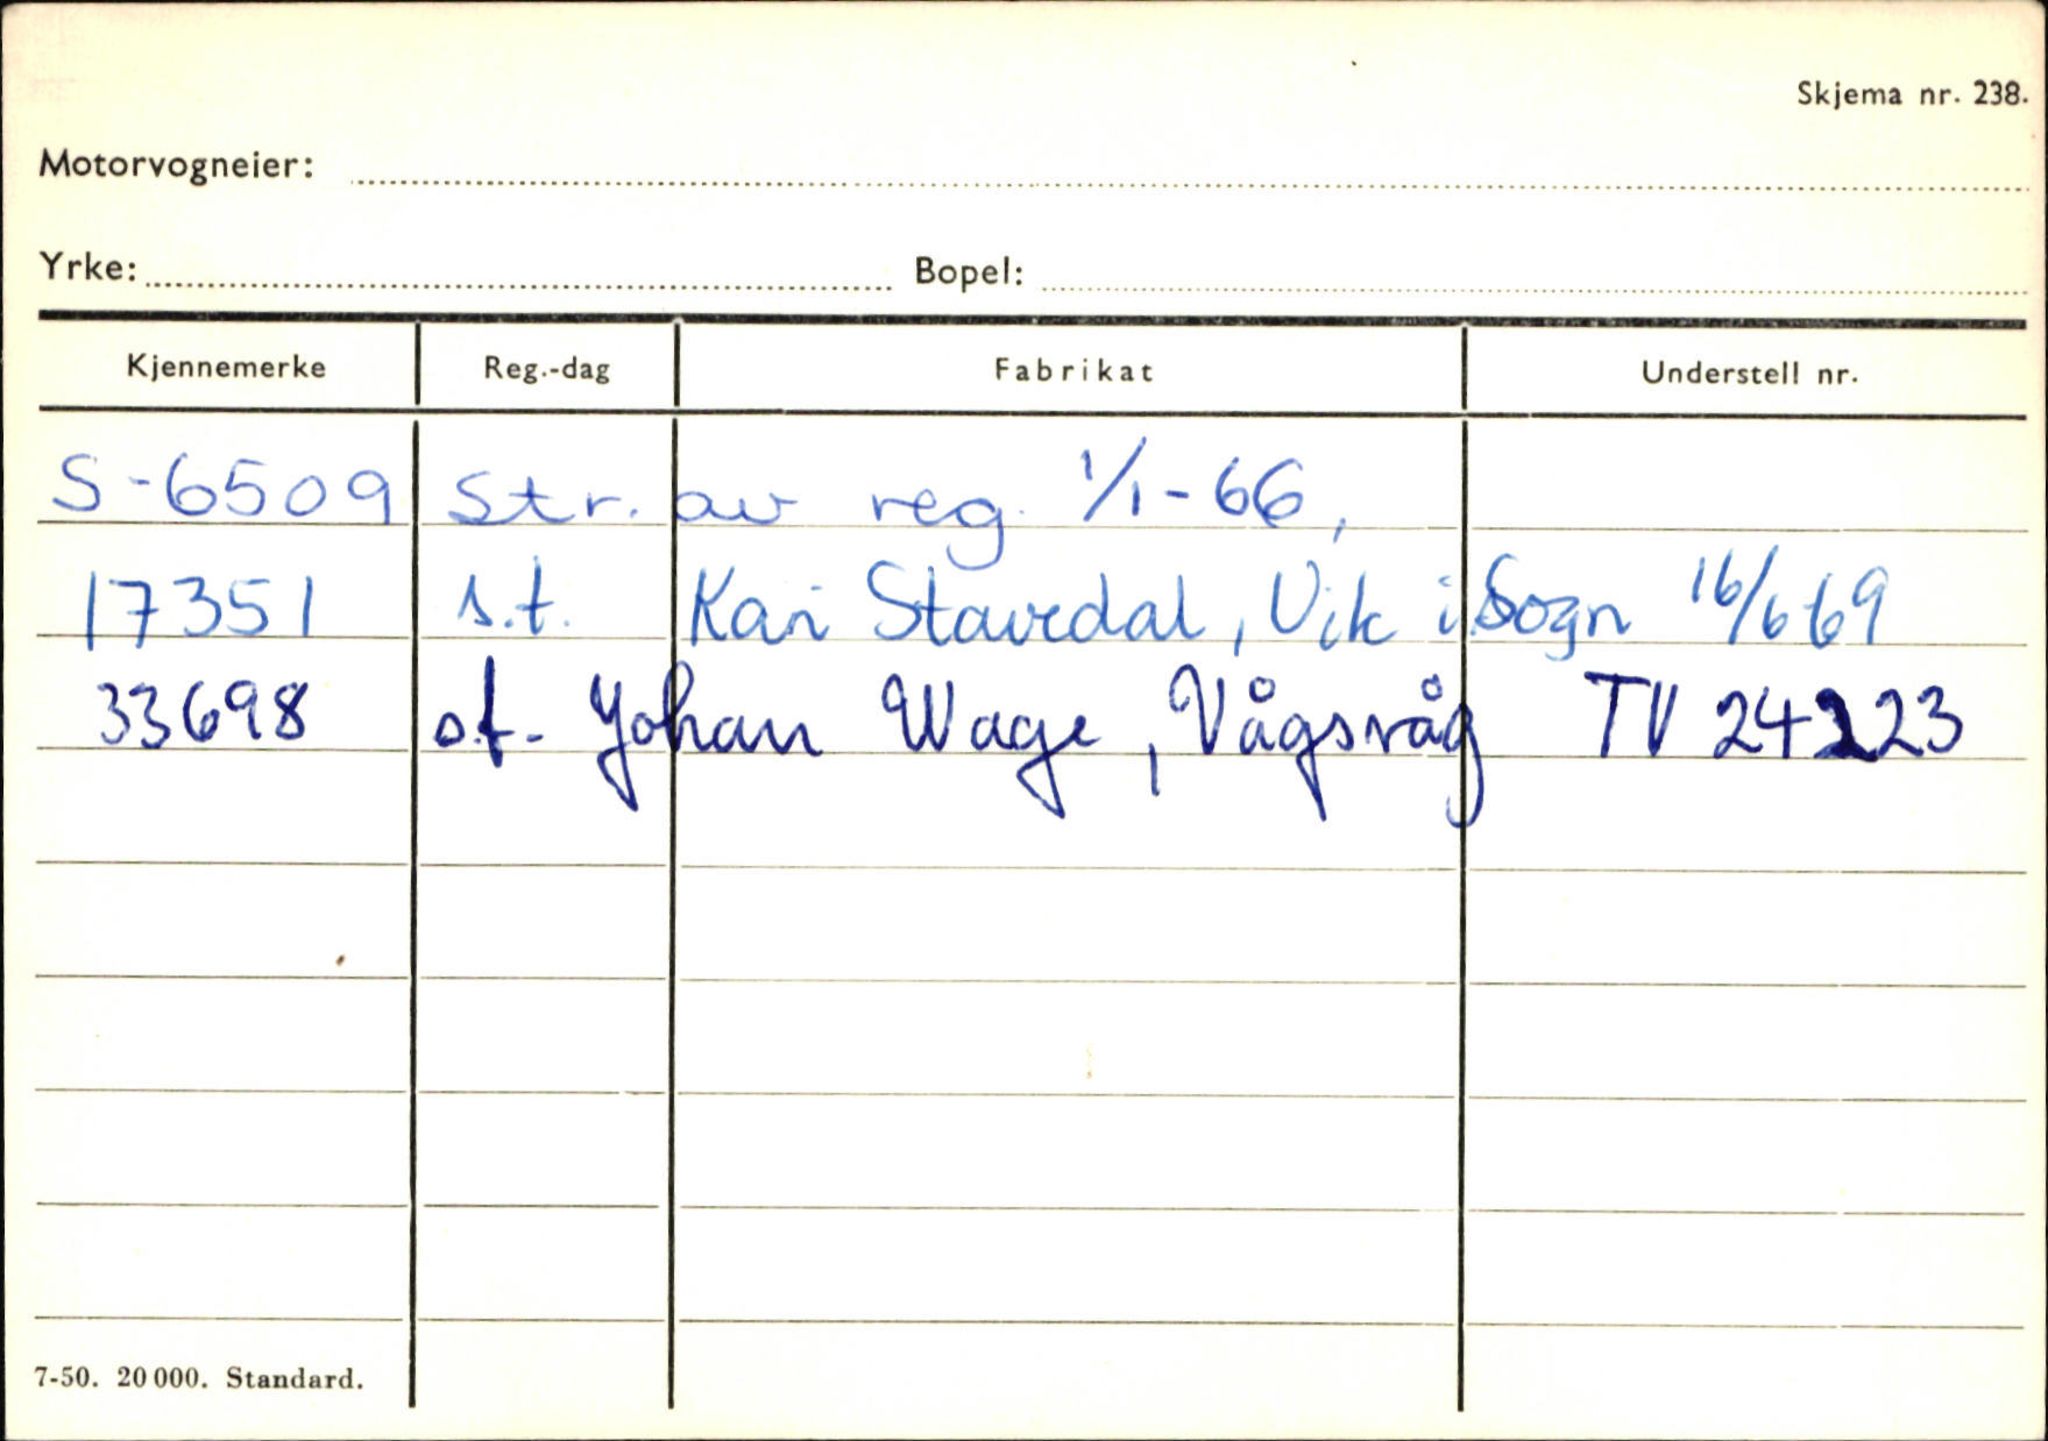 Skjema nr. 238.
Motorvogneier:
Yrke: Bopel:
Kjennemerke Reg.-dag Fabrikat Understell nr.
S-6509 Str. av reg. 1/1-66,
17351 s.t. Kari Stavedal, Vik i Sogn 16/6-69
33698 s.f. Johan Wage, Vågsvåg TV 24223
7-50. 20 000. Standard.